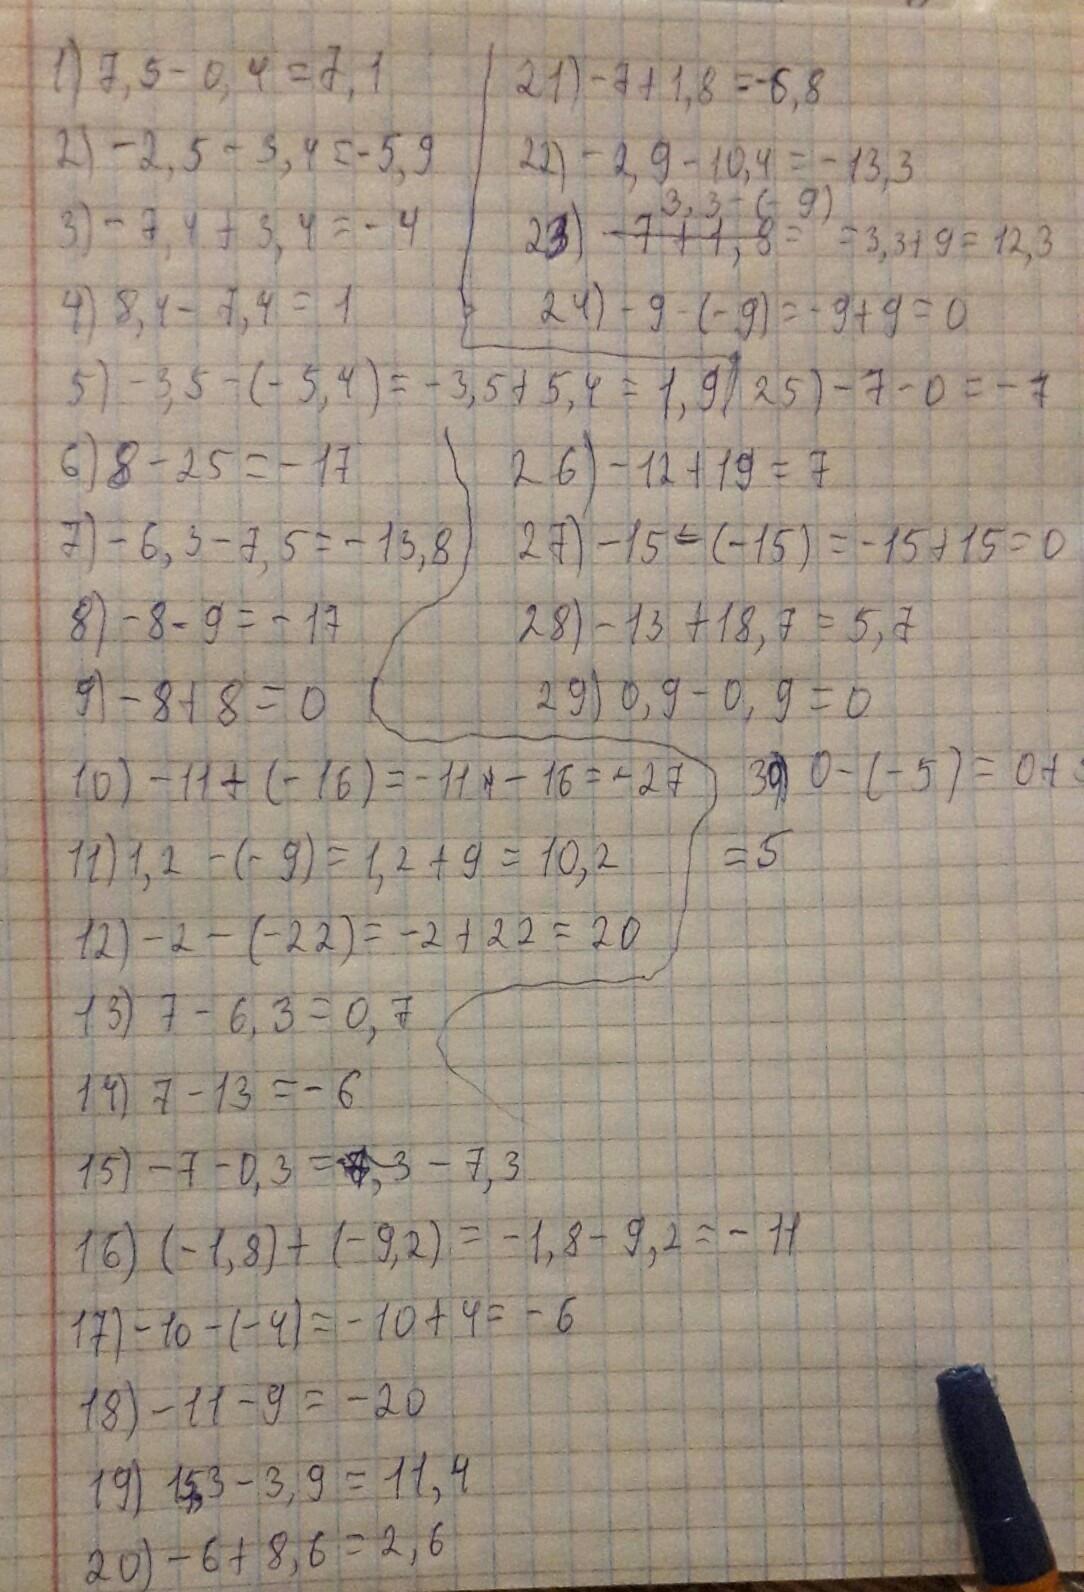 1) 7,5 - 0,4 = 7,1
2) -2,5 - 3,4 = -5,9
3) -7,4 + 3,4 = -4
4) 8,4 - 7,4 = 1
5) -3,5 - (-5,4) = -3,5 + 5,4 = 1,9
6) 8 - 25 = -17
7) -6,3 - 7,5 = -13,8
8) -8 - 9 = -17
9) -8 + 8 = 0
10) -11 + (-16) = -11 + - 16 = -27
11) 1,2 - (-9) = 1,2 + 9 = 10,2
12) -2 - (-22) = -2 + 22 = 20
13) 7 - 6,3 = 0,7
14) 7 - 13 = -6
15) -7 - 0,3 = - 7,3
16) (-1,8) + (-9,2) = -1,8 - 9,2 = -11
17) -10 - (-4) = -10 + 4 = -6
18) -11 - 9 = -20
19) 15,3 - 3,9 = 11,4
20) -6 + 8,6 = 2,6
21) -7 + 1,8 = -6,8
22) -2,9 - 10,4 = -13,3
3,3 - (-9)
23) -7 + 1,8 = = 3,3 + 9 = 12,3
24) -9 - (-9) = -9 + 9 = 0
25) -7 - 0 = -7
26) -12 + 19 = 7
27) -15 - (-15) = -15 + 15 = 0
28) -13 + 18,7 = 5,7
29) 0,9 - 0,9 = 0
30) 0 - (-5) = 0 +
= 5